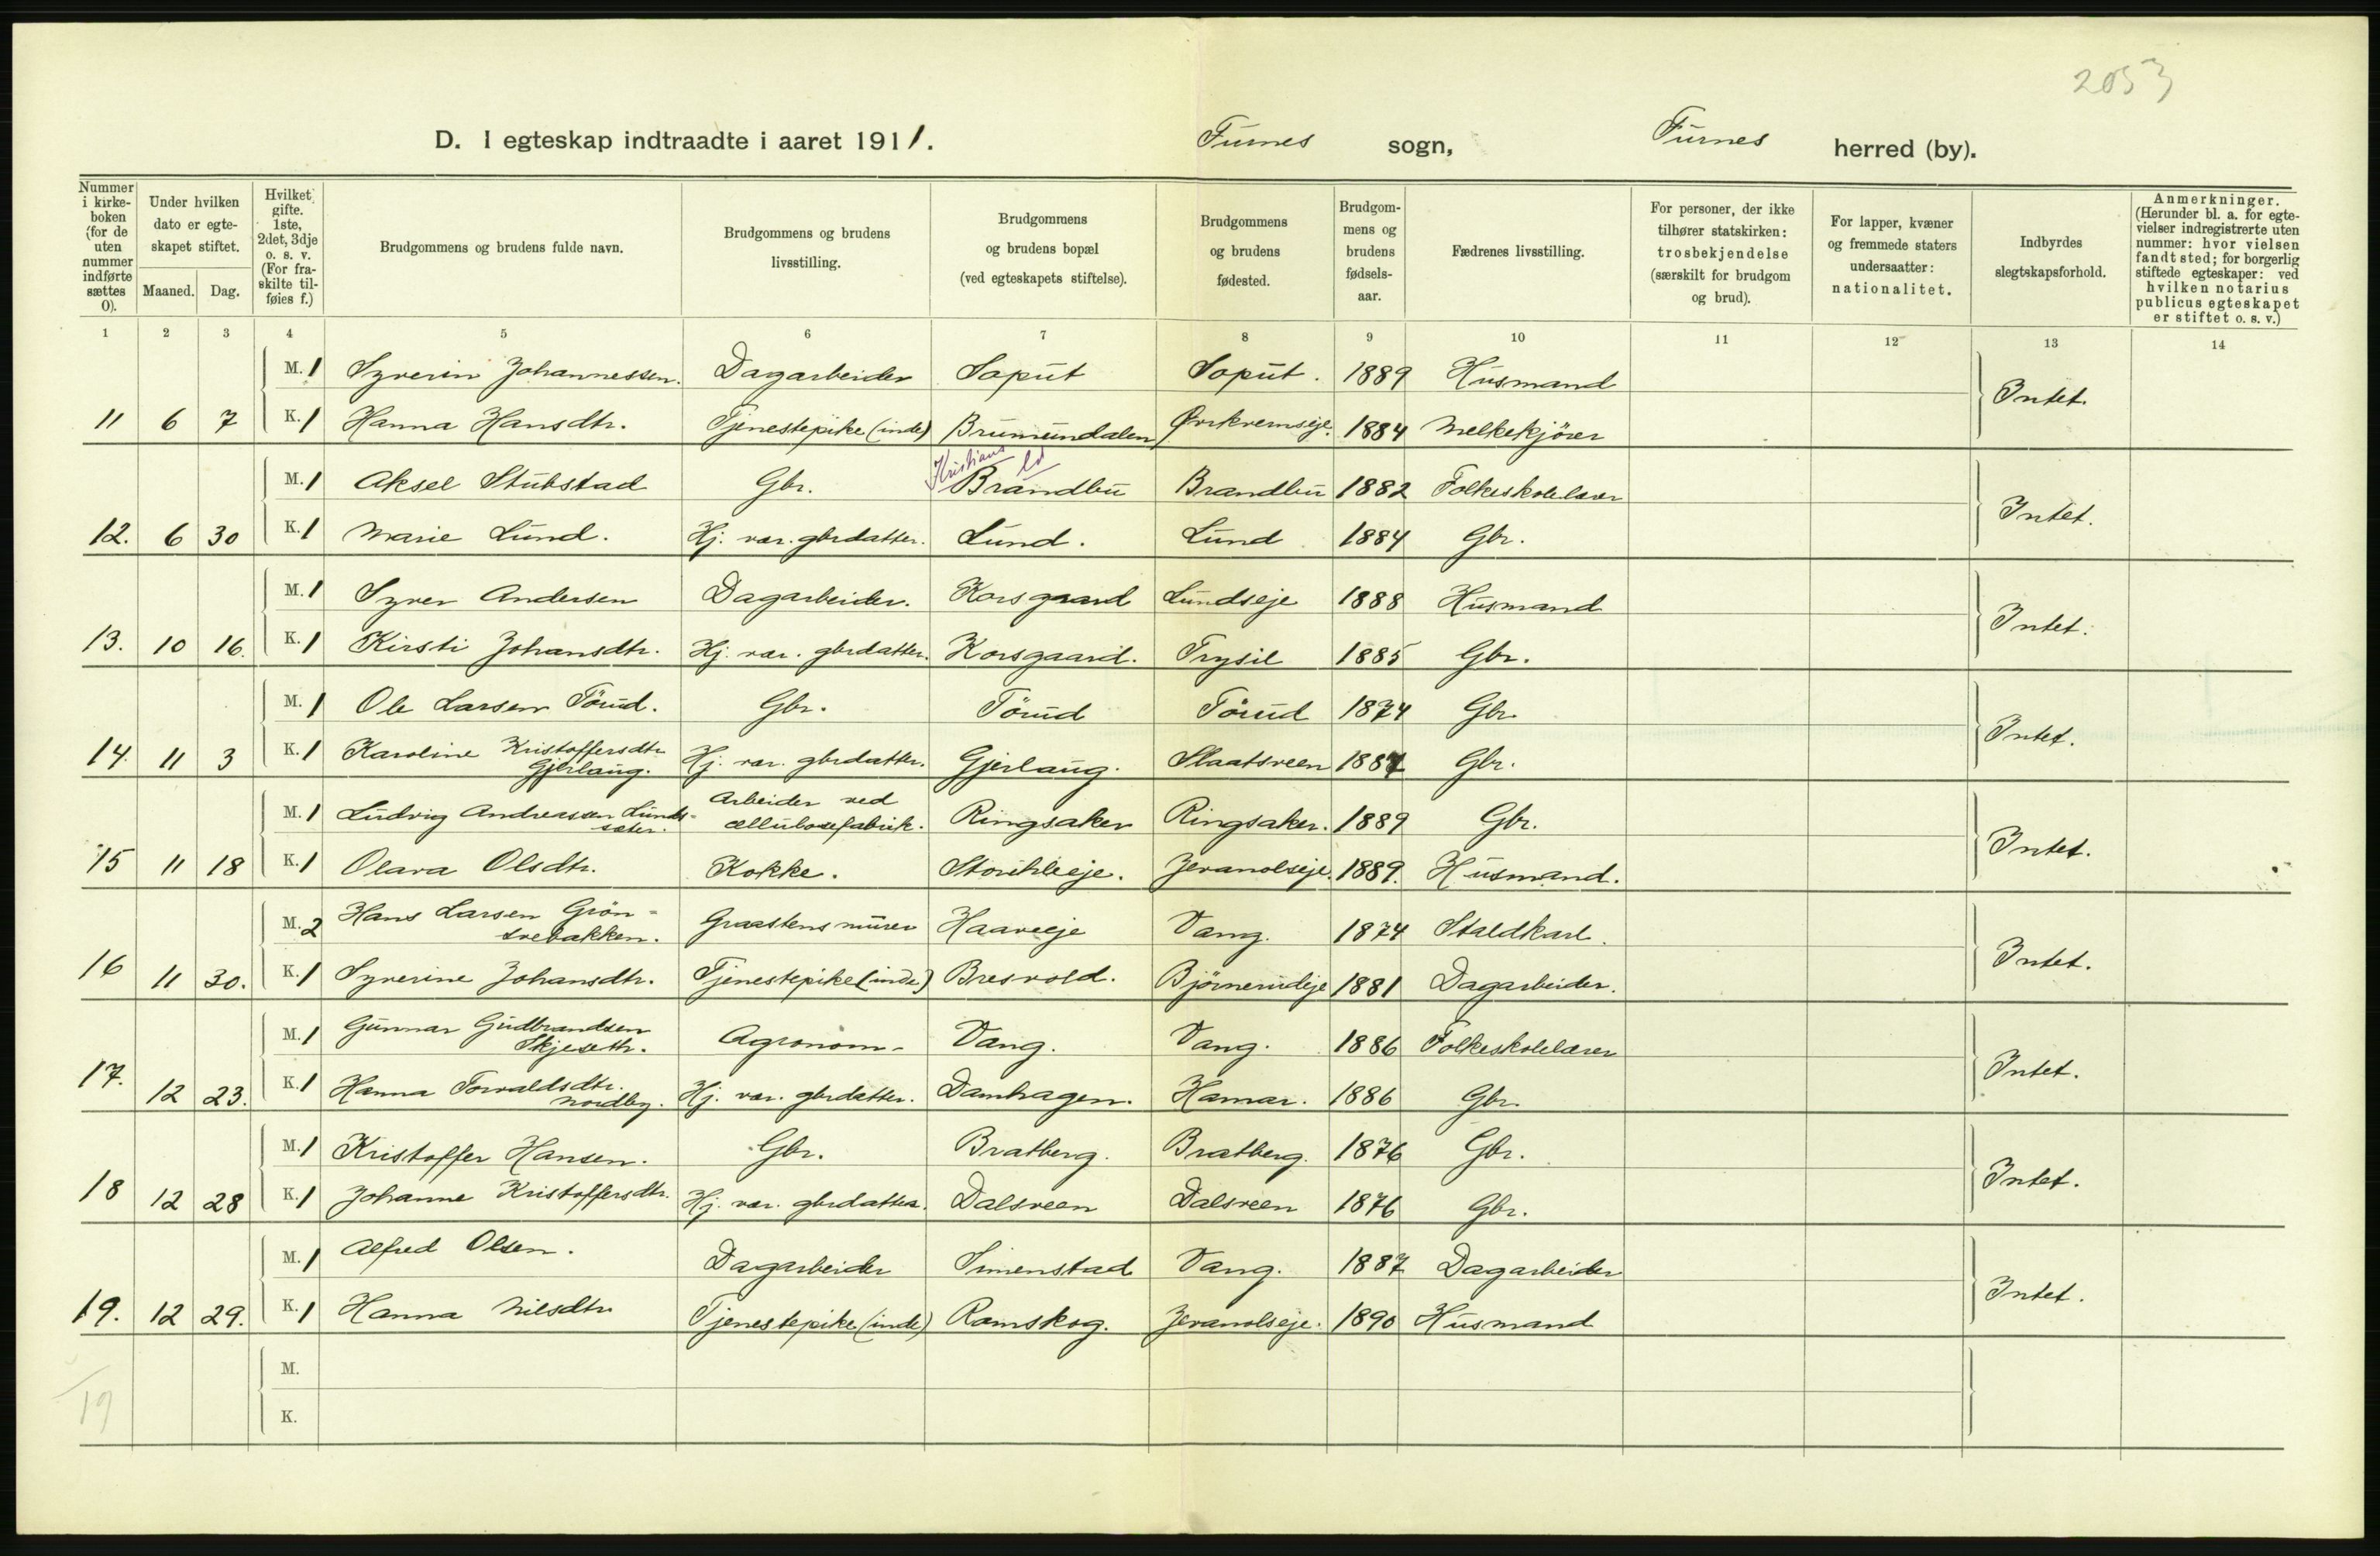 2053
D. I egteskap indtraadte i aaret 1911. Furnes sogn, Furnes herred (by).
Nummer i kirkeboken (for de uten nummer indførte sættes 0). Under hvilken dato er egteskapet stiftet. Maaned. Dag. Hvilket gifte. 1ste, 2det, 3dje o. s. v. (For fraskilte tilføies f.) Brudgommens og brudens fulde navn. Brudgommens og brudens livsstilling. Brudgommens og brudens bopæl (ved egteskapets stiftelse). Brudgommens og brudens fødested. Brudgommens og brudens fødselsaar. Fædrenes livsstilling. For personer, der ikke tilhører statskirken: trosbekjendelse (særskilt for brudgom og brud). For lapper, kvæner og fremmede staters undersaatter: nationalitet. Indbyrdes slegtskapsforhold. Anmerkninger. (Herunder bl. a. for egtevielser indregistrerte uten nummer: hvor vielsen fandt sted; for borgerlig stiftede egteskaper: ved hvilken notarius publicus egteskapet er stiftet o. s. v.)
1 2 3 4 5 6 7 8 9 10 11 12 13 14
M. 1 Syverin Johannessen. Dagarbeider Saput Saput. 1889 Husmand
11 6 7 K. 1 Hanna Hansdtr. Tjenestepike (inde) Brumundalen 1884 Melkekjörer Intet.
Kristians
M. 1 Aksel Stubstad Gbr. Brandbu Brandbu 1882 Folkeskolelærer
12. 6 30 K. 1 Marie Lund. Hj. vær. gbrdatter. Lund. Lund 1884 Gbr. Intet.
M. 1 Syver Andersen Dagarbeider. Korsgaard Lundseje 1888 Husmand
13. 10 16. K. 1 Kirsti Johansdtr. Hj. vær. gbrdatter. Korsgaard. Trysil 1885 Gbr. Intet.
M. 1 Ole Larsen Törud. Gbr. Törud Törud 1874 Gbr.
14. 11 3 K. 1 Karoline Kristoffersdtr. Gjerlaug. Hj. vær. gbrdatter. Gjerlaug. Slaatsveen 1887 Gbr. Intet.
M. 1 Ludvig Andreassen Lundssæter. Arbeider ved cellulosefabrik. Ringsaker Ringsaker. 1889 Gbr.
15 11 18 K. 1 Olava Olsdtr. Kokke. Jevanolseje. 1889. Husmand. Intet.
M. 2 Hans Larsen Gröntvebakken. Graastensmurer Haaveeje Vang. 1874 Staldkarl.
16 11 30. K. 1 Syverine Johansdtr. Tjenestepike (inde) Bresvold. Björnerudeje 1881 Dagarbeider. Intet.
M. 1 Gunnar Gudbrandsen Skjeseth. Agronom. Vang. Vang. 1886 Folkeskolelærer
17. 12 23. K. 1 Hanna Torvaldsdtr. Nordby. Hj. vær. gbrdatter. Damhagen. Hamar. 1886 Gbr. Intet.
M. 1 Kristoffer Hansen. Gbr. Bratberg. Bratberg. 1876 Gbr.
18 12 28 K. 1 Johanne Kristoffersdtr. Hj. vær. gbrdatter. Dalsveen Dalsveen 1876 Gbr. Intet.
M. 1 Alfred Olsen. Dagarbeider Simenstad Vang. 1887 Dagarbeider
19. 12 29. K. 1 Hanna Nilsdtr. Tjenestepike (inde) Ramskog. Jevanolseje. 1890 Husmand Intet.
M.
19 K.